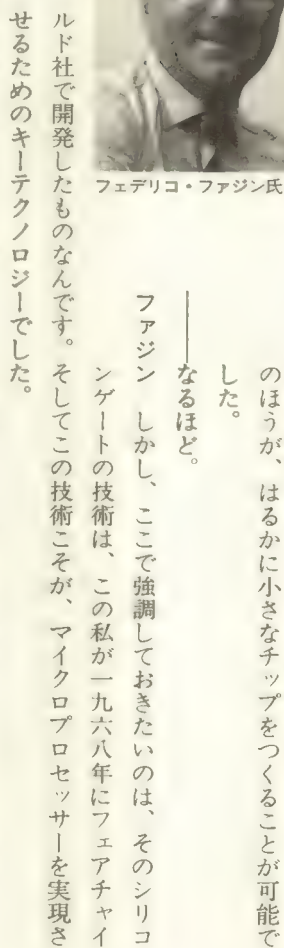 のほうが、はるかに小さなチップをつくることが可能で
した。
――なるほど。
ファジン　しかし、ここで強調しておきたいのは、そのシリコ
ンゲートの技術は、この私が一九六八年にフェアチャイ
ルド社で開発したものなんです。そしてこの技術こそが、マイクロプロセッサーを実現さ
せるためのキーテクノロジーでした。
フェデリコ・ファジン氏